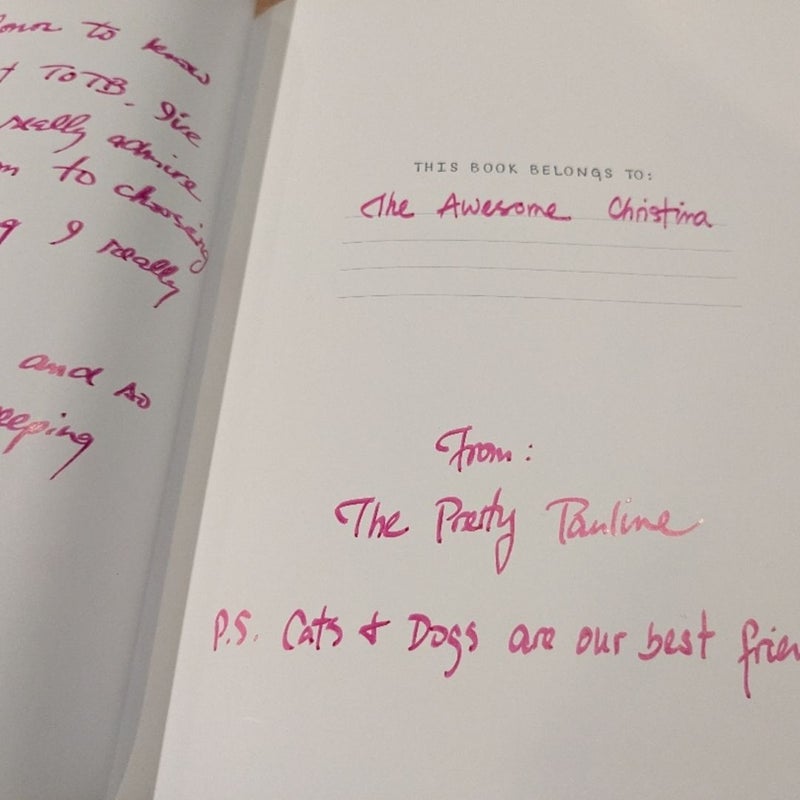 to know
TOTB. I've
really admire
to choosing
I really
and so
THIS BOOK BELONGS TO:
The Awesome Christina
From:
The Pretty Pauline
P.S. Cats & Dogs are our best